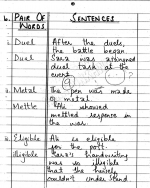 6. Pair Of Words Sentences
i. Duel After the duel, the battle began
Duel Sara was assigned dual task at the event
ii. Metal The pen was made of metal
Mettle He showed mettled response in the war.
iii. Eligible Ali is eligible for the post.
illegible Sara's handwriting was so illegible that she herself couldn't understand